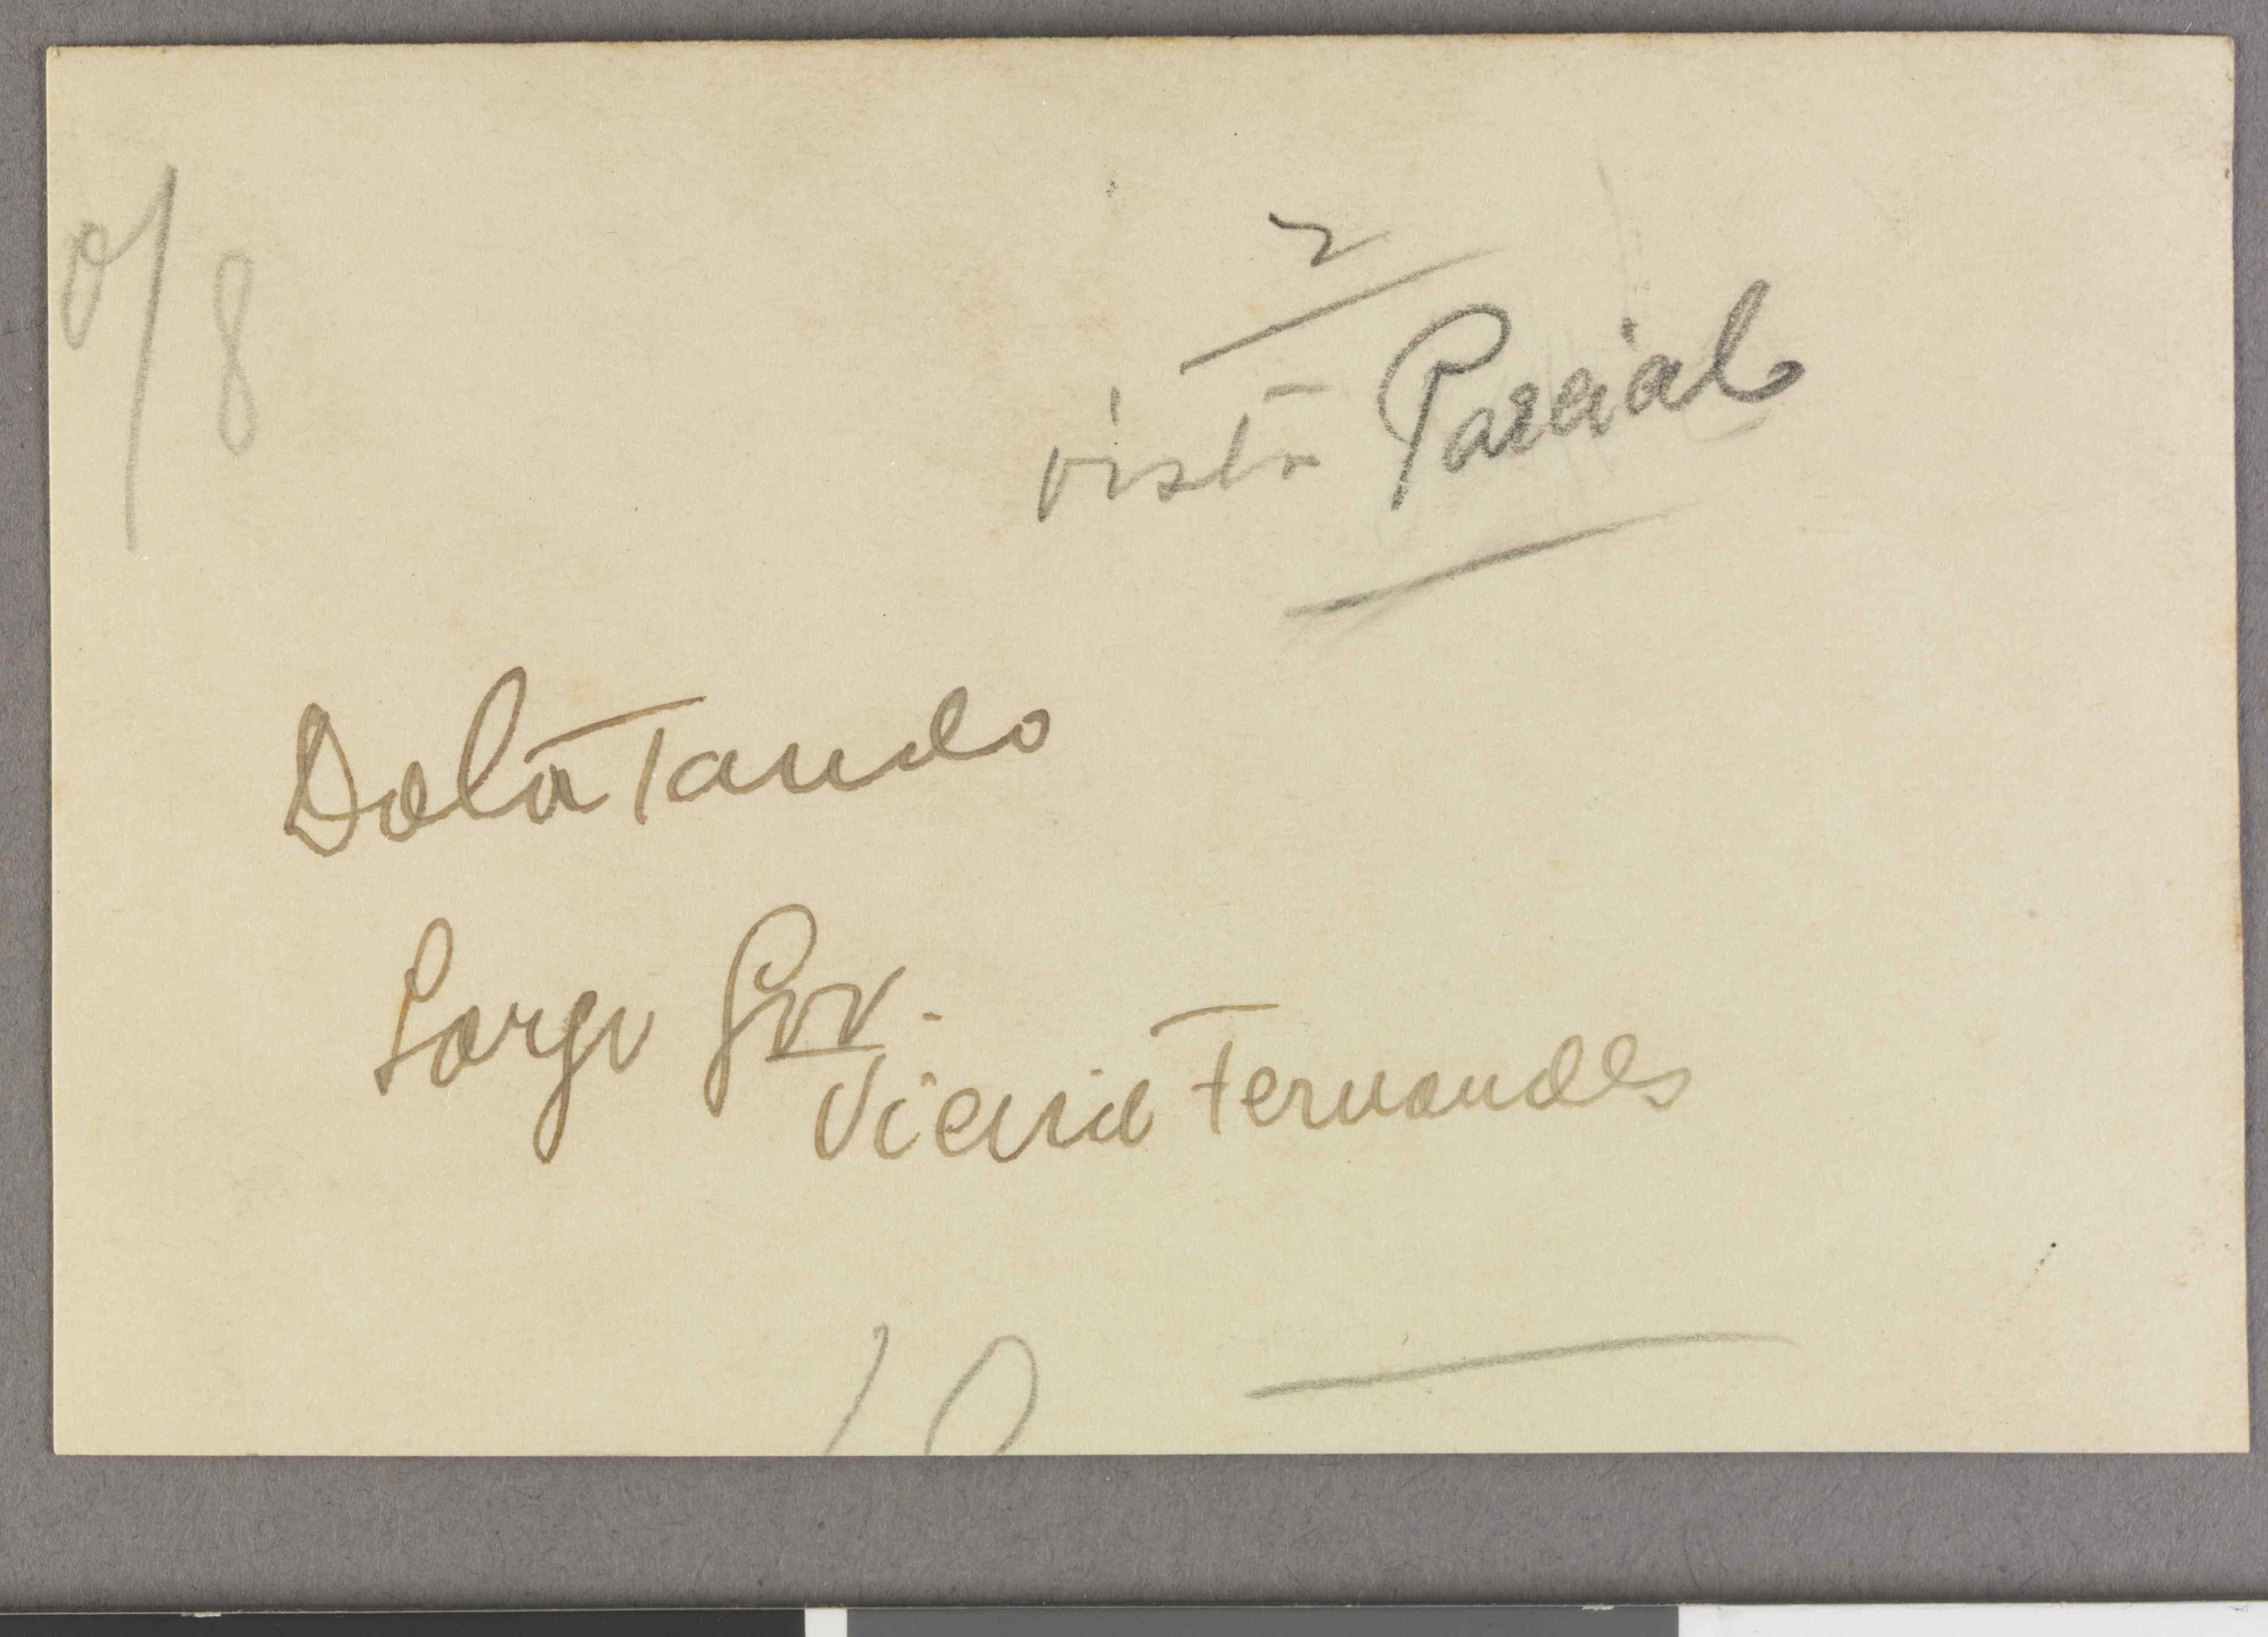 0/8
2
vista Parcial
Dalatando
Largo Gov.
Vieira Fernandes
10